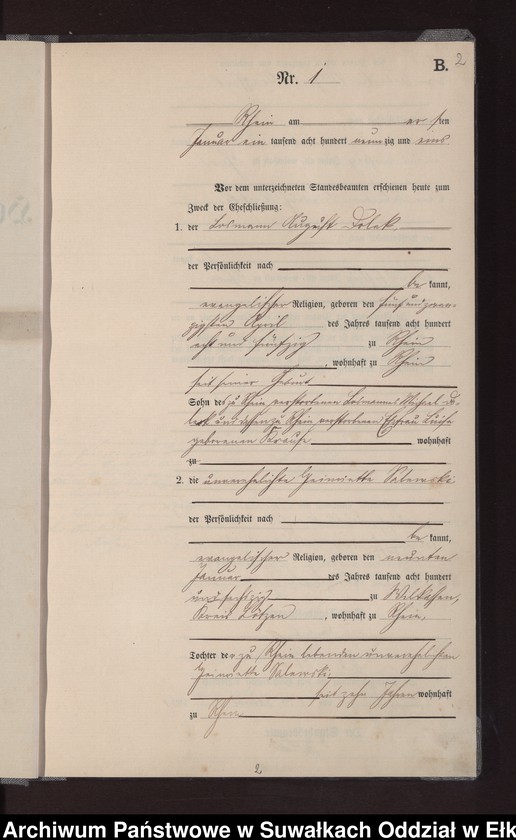 B. 2
Nr. 1
Rhein am ersten
Januar ein tausend acht hundert neunzig und eins
Vor dem unterzeichneten Standesbeamten erschienen heute zum
Zweck der Eheschließung:
1. der Losmann August
der Persönlichkeit nach
be kannt,
evangelischer Religion, geboren den fünf und zwan-
zigsten April des Jahres tausend acht hundert
acht und fünfzig zu Rhein
, wohnhaft zu Rhein
seit seiner Geburt
Sohn des zu Rhein verstorbenen Losmanns Michael
und der zu Rhein verstorbenen Ehefrau Luise
geborenen Krause wohnhaft
zu
2. die unverehelichte Heinriette Salewski
der Persönlichkeit nach
be kannt,
evangelischer Religion, geboren den neunten
Januar des Jahres tausend acht hundert
und sechszig zu
Kreis Lötzen , wohnhaft zu Rhein,
Tochter der zu Rhein lebenden unverehelichten
Heinriette Salewski,
seit zehn Jahren wohnhaft
zu Rhein
2
Archiwum Państwowe w Suwałkach Oddział w Ełk